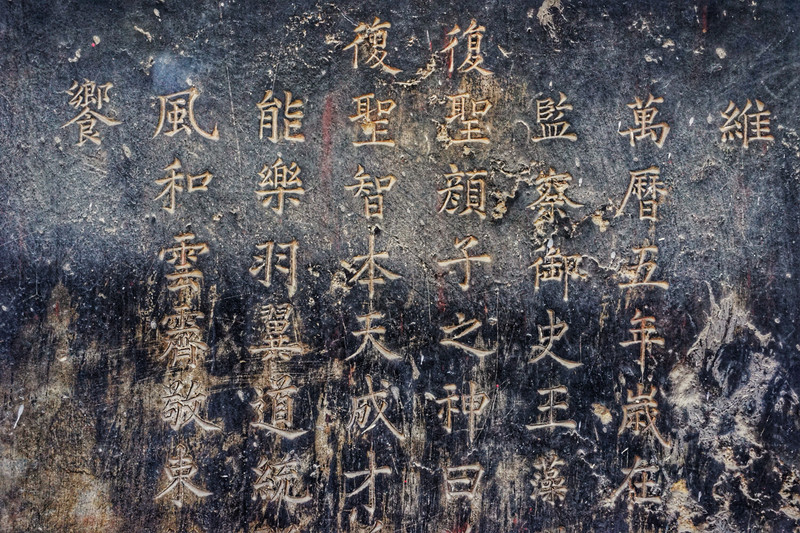 維
萬曆五年歲在
監察御史王藻
復聖顏子之神曰
復聖智本天成才
能樂羽翼道統
風和雲霽敬束
饗